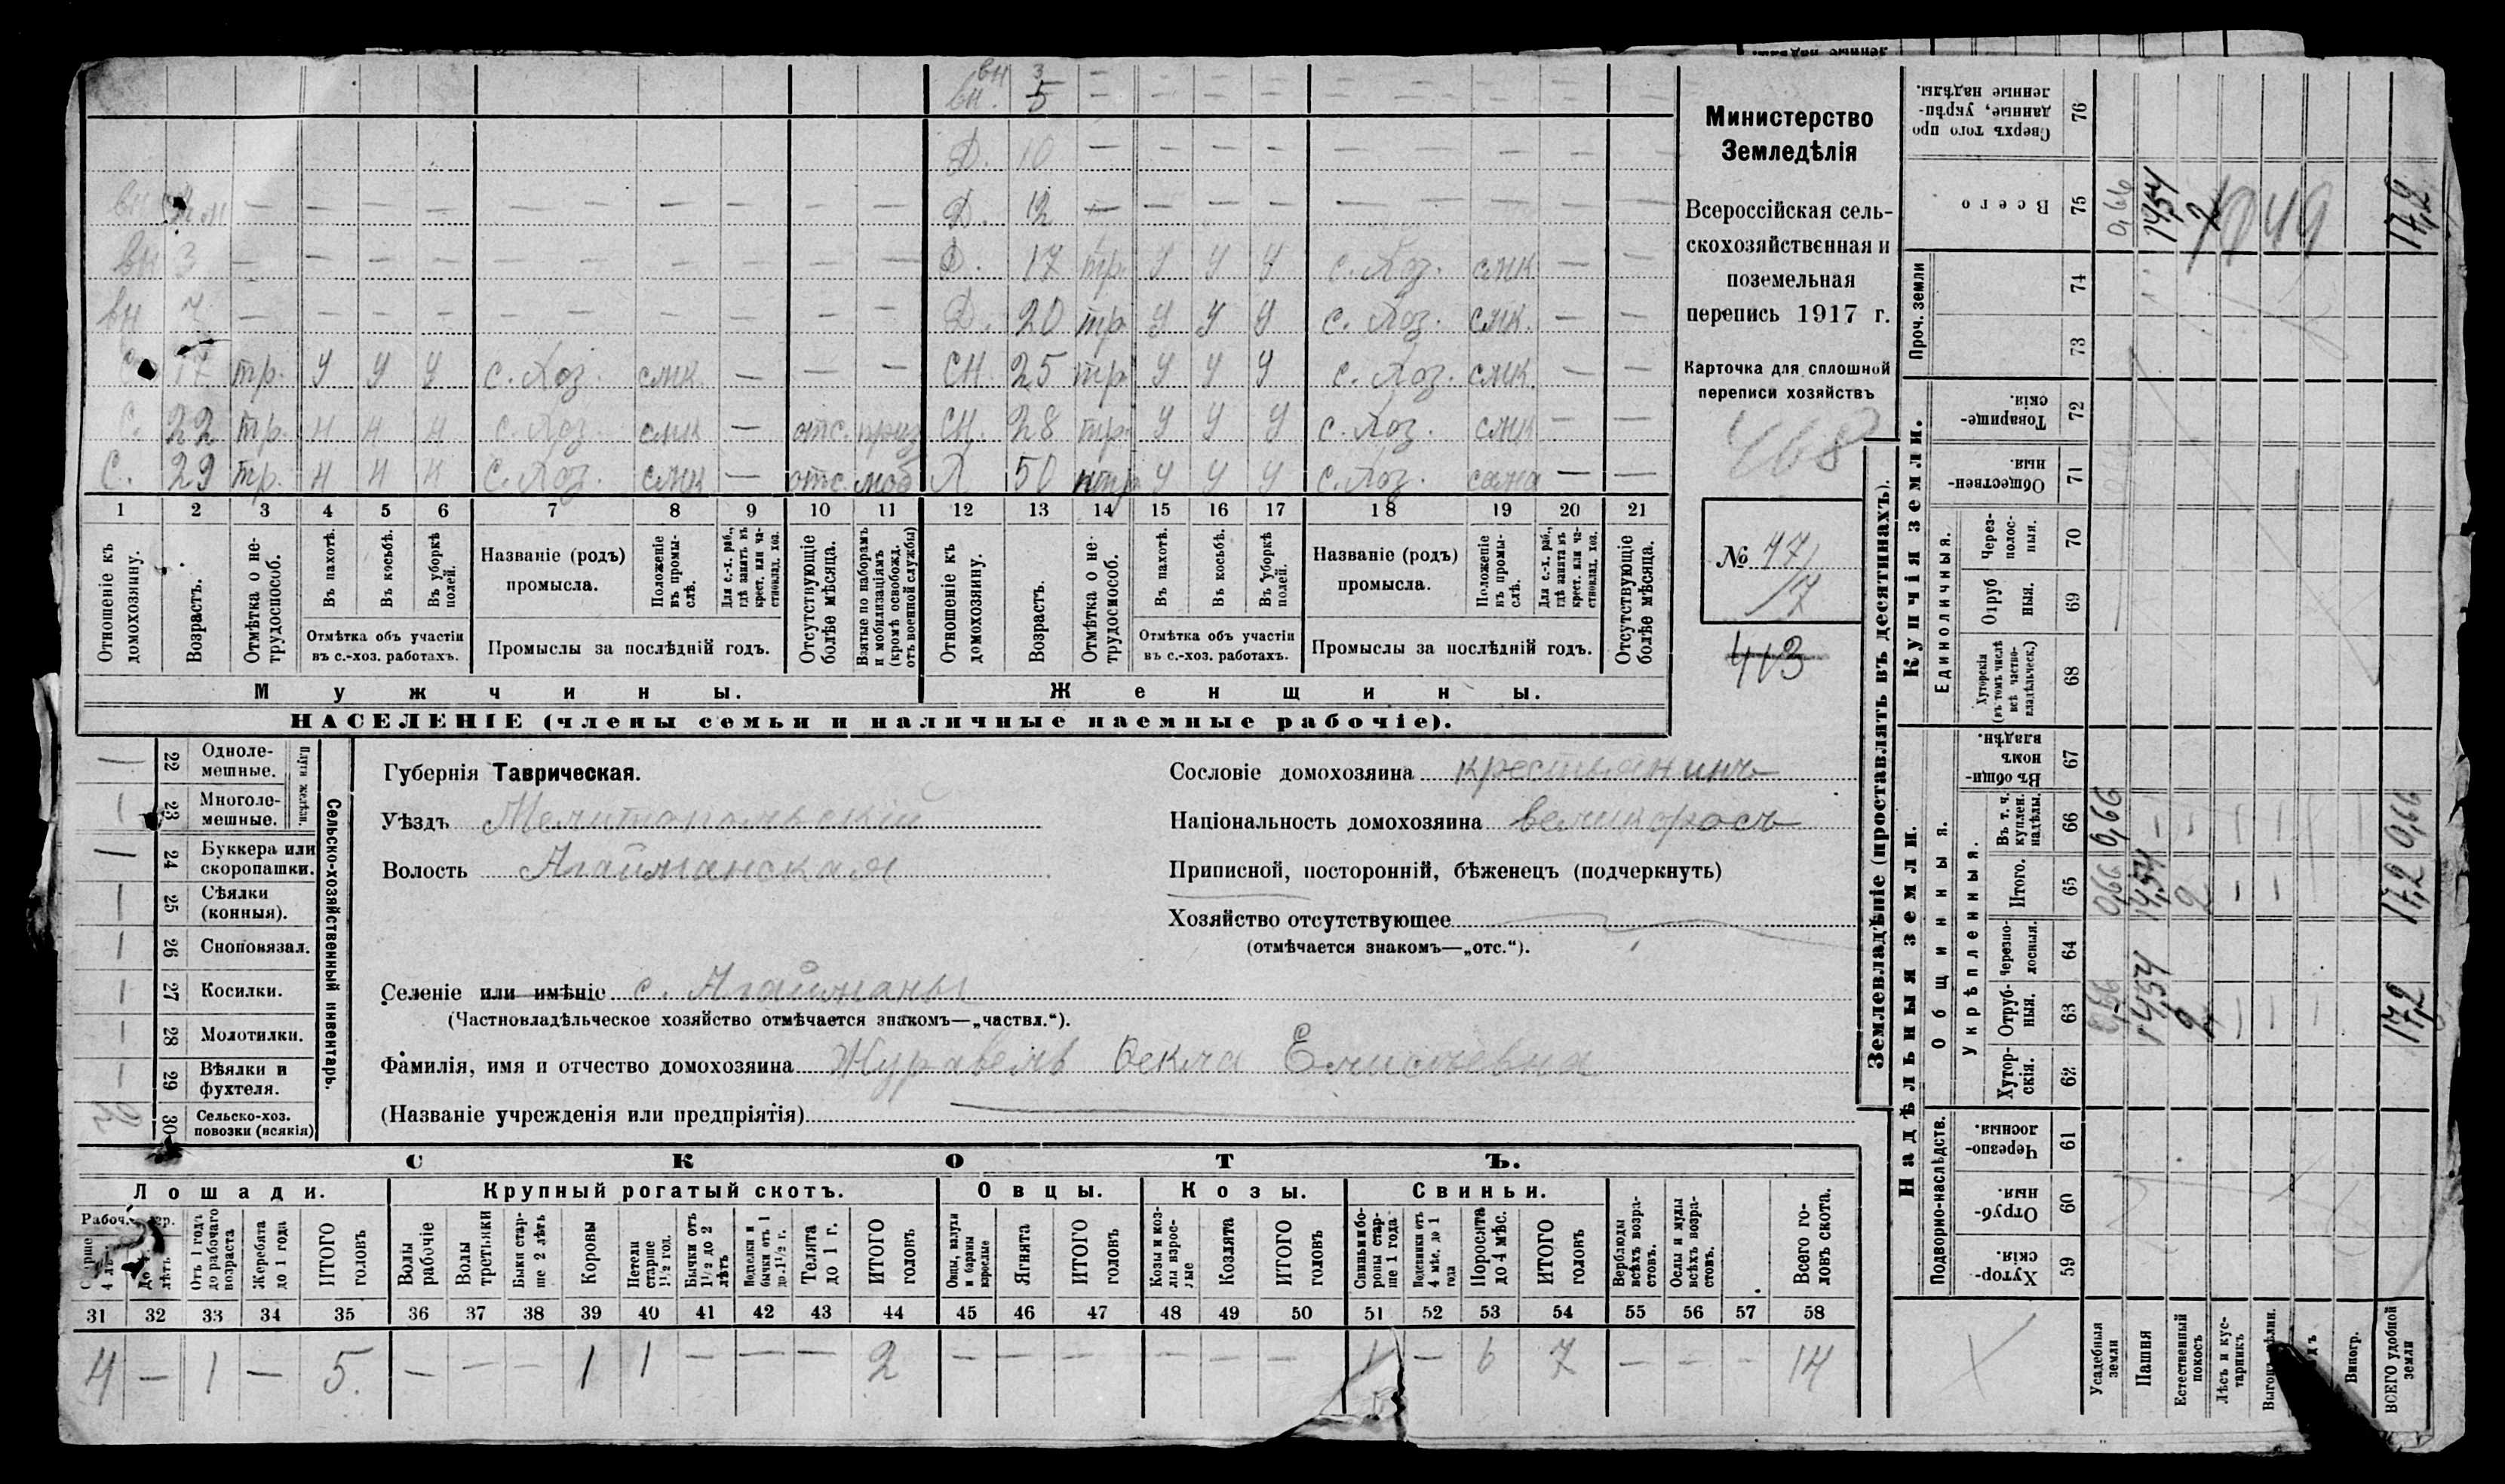 вн 3
вн. 5 — — — — — — — — —
Д. 10 — — — — — — — —
вн — — — — — — — — — Д. 12 — — — — — — — —
вн 3 — — — — — — — — — Д. 17 тр. У У У с. Хоз. смк — —
вн 7 — — — — — — — — — Д. 20 тр У У У с. Хоз. смк. — —
С. 17 тр. У У У с. Хоз. смк. — — — СН. 25 тр У У У с. Хоз. смк. — —
С. 22 тр. н н н с. Хоз. смк — отс. приз СН. 28 тр. У У У с. Хоз. смк — —
С. 29 тр. н н н с. Хоз. смк — отс. моб Х 50 нтр У У У с. Хоз. сама — —
1 2 3 4 5 6 7 8 9 10 11 12 13 14 15 16 17 18 19 20 21
Отношеніе къ домохозяину.
Возрастъ.
Отмѣтка о не-трудоспособ.
Въ пахотѣ.
Въ косьбѣ.
Въ уборкѣ полей.
Отмѣтка объ участіи въ с.-хоз. работахъ.
Названіе (родъ) промысла.
Положеніе въ промы-слѣ.
Для с.-х. раб., гдѣ занятъ въ крест. или ча-стновлад. хоз.
Промыслы за послѣдній годъ.
Отсутствующіе болѣе мѣсяца.
Взятые по наборамъ и мобилизаціямъ (кромѣ освобожд. отъ военной службы)
Отношеніе къ домохозяину.
Возрастъ.
Отмѣтка о не-трудоспособ.
Въ пахотѣ.
Въ косьбѣ.
Въ уборкѣ полей.
Отмѣтка объ участіи въ с.-хоз. работахъ.
Названіе (родъ) промысла.
Положеніе въ промы-слѣ.
Для с.-х. раб., гдѣ занята въ крест. или ча-стновлад. хоз.
Промыслы за послѣдній годъ.
Отсутствующіе болѣе мѣсяца.
Мужчины. Женщины.
НАСЕЛЕНІЕ (члены семьи и наличные наемные рабочіе).
Министерство
Земледѣлія
Всероссійская сель-
скохозяйственная и
поземельная
перепись 1917 г.
Карточка для сплошной
переписи хозяйствъ
468
№ 47/
17
413
Сельско-хозяйственный инвентарь.
Плуги желѣзн.
22 Одноле-мешные.
1 23 Многоле-мешные.
— 24 Буккера или скоропашки.
1 25 Сѣялки (конныя).
1 26 Сноповязал.
1 27 Косилки.
1 28 Молотилки.
1 29 Вѣялки и фухтеля.
2 30 Сельско-хоз. повозки (всякія)
Губернія Таврическая.
Уѣздъ Мелитопольскій
Волость Агайманская
Селеніе или имѣніе с. Агайманы
(Частновладѣльческое хозяйство отмѣчается знакомъ—„частвл.“).
Фамилія, имя и отчество домохозяина Журавель Фекла Елисѣевна
(Названіе учрежденія или предпріятія)
Сословіе домохозяина крестьянинъ
Національность домохозяина великоросъ
Приписной, посторонній, бѣженецъ (подчеркнуть)
Хозяйство отсутствующее
(отмѣчается знакомъ—„отс.“).
СКОТЪ.
Лошади. Крупный рогатый скотъ. Овцы. Козы. Свиньи.
Отъ 1 годъ до рабочаго возраста
Жеребята до 1 года
ИТОГО головъ
Волы рабочіе
Волы третьяки
Быки стар-ше 2 лѣтъ
Коровы
Нетели старше 1½ год.
Бычки отъ 1½ до 2 лѣтъ
Подтелки и бычки отъ 1 до 1½ г.
Телята до 1 г.
ИТОГО головъ
Овцы, валухи и бараны взрослые
Ягнята
ИТОГО головъ
Козы и коз-лы взрос-лые
Козлята
ИТОГО головъ
Свиньи и бо-ровы стар-ше 1 года
Подсвинки отъ 4 мѣс. до 1 года
Поросята до 4 мѣс.
ИТОГО головъ
Верблюды всѣхъ возра-стовъ.
Ослы и мулы всѣхъ возра-стовъ.
Всего го-ловъ скота.
31 32 33 34 35 36 37 38 39 40 41 42 43 44 45 46 47 48 49 50 51 52 53 54 55 56 57 58
4 — 1 — 5. — — — 1 1 — — — 2 — — — — — — 1 — 6 7 — — — 14
Землевладѣніе (проставлять въ десятинахъ).
Купчія земли.
Надѣльныя земли.
Сверхъ того про данные, укрѣп-ленные надѣлы. 76
Всего 75 0,66 14,54 2 17,2
1049
Проч. земли 74 73
Товарище-скія. 72
Обществен-ныя. 71
Единоличныя.
Через-полос-ныя. 70
Отруб ныя. 69
Хуторскія (въ томъ числѣ всѣ частно-владѣльческ.) 68
Общинныя.
Въ общи-номъ владѣн. 67
Укрѣпленныя.
Въ т. ч. куплен. надѣлы. 66 0,66 0,66
Итого. 65 0,66 14,54 2 17,2
Черезпо-лосныя. 64
Отруб-ныя. 63 0,66 14,54 2 17,2
Хутор-скія. 62
Подворно-наслѣдств.
Черезпо-лосныя. 61
Отруб-ныя. 60
Хутор-скія. 59
Усадебныя земли
Пашня
Естественный покосъ
Лѣсъ и кус-тарникъ
Виногр.
ВСЕГО удобной земли